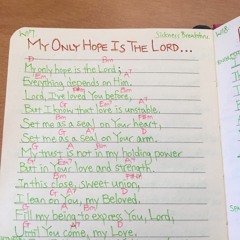 MY ONLY HOPE IS THE LORD...
D Bm
My only hope is the Lord;
Em A7
Everything depends on Him.
Lord, I've loved You before,
G Em A7
But I know that love is unstable.
D Bm F#m
Set me as a seal on Your heart,
G A7 D
Set me as a seal on Your arm.
My trust is not in my holding power
But in Your love and strength.
In this close, sweet union,
I lean on You, my Beloved.
Fill my being to express You, Lord,
Until You come, my Love.